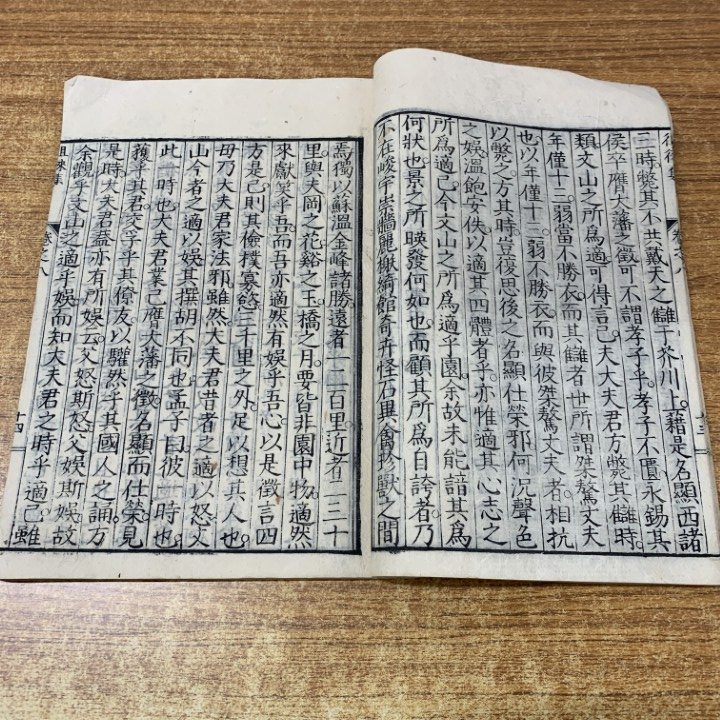 徂徠集
卷之八
十三
三時斃其不共戴天之讎于芥川上。藉是名顯西諸
侯卒膺大藩之徵可不謂孝子乎。孝子不匱永錫其
類文山之所爲適可得言已。夫大夫君方斃其讎時。
年僅十三。弱當不勝衣。而其讎者世所謂桀驁丈夫
也。以年僅十三。弱不勝衣而與彼桀驁丈夫者相抗
以斃之。方其時豈復思後之名顯仕榮邪。何況聲色
之娛。溫飽安佚。以適其四體者乎。亦惟適其心志之
所爲適已。今文山之所爲適乎園。余故未能諳其爲
何狀也。景之所映發何如也。而顧其所爲自誇者。乃
不在峻宇崇牆麗榭綺館奇卉怪石異禽珍獸之間
焉。獨以蘇溫金峰諸勝。遠者一二百里。近者二三十
里。與夫岡之花。谿之玉。橋之月。要皆非園中物。適然
來獻笑乎吾。而吾亦適然有娛乎吾心。以是徵言四
方。是已則其儉樸寡慾。三千里之外。足以想其人也。
毋乃大夫君家法邪。雖然大夫君昔者之適以怒。文
山今者之適以娛。其撰胡不同也。孟子曰。彼一時也。
此一時也。大夫君業已膺大藩之徵。名顯而仕榮。見
獲乎其君。交孚乎其僚友。以驩然乎其國人之誦。方
是時。大夫君盍亦有所娛云。父怒斯怒。父娛斯娛。故
余觀乎文山之適乎娛。而知大夫君之時乎適已。雖
徂徠集
卷之八
十四